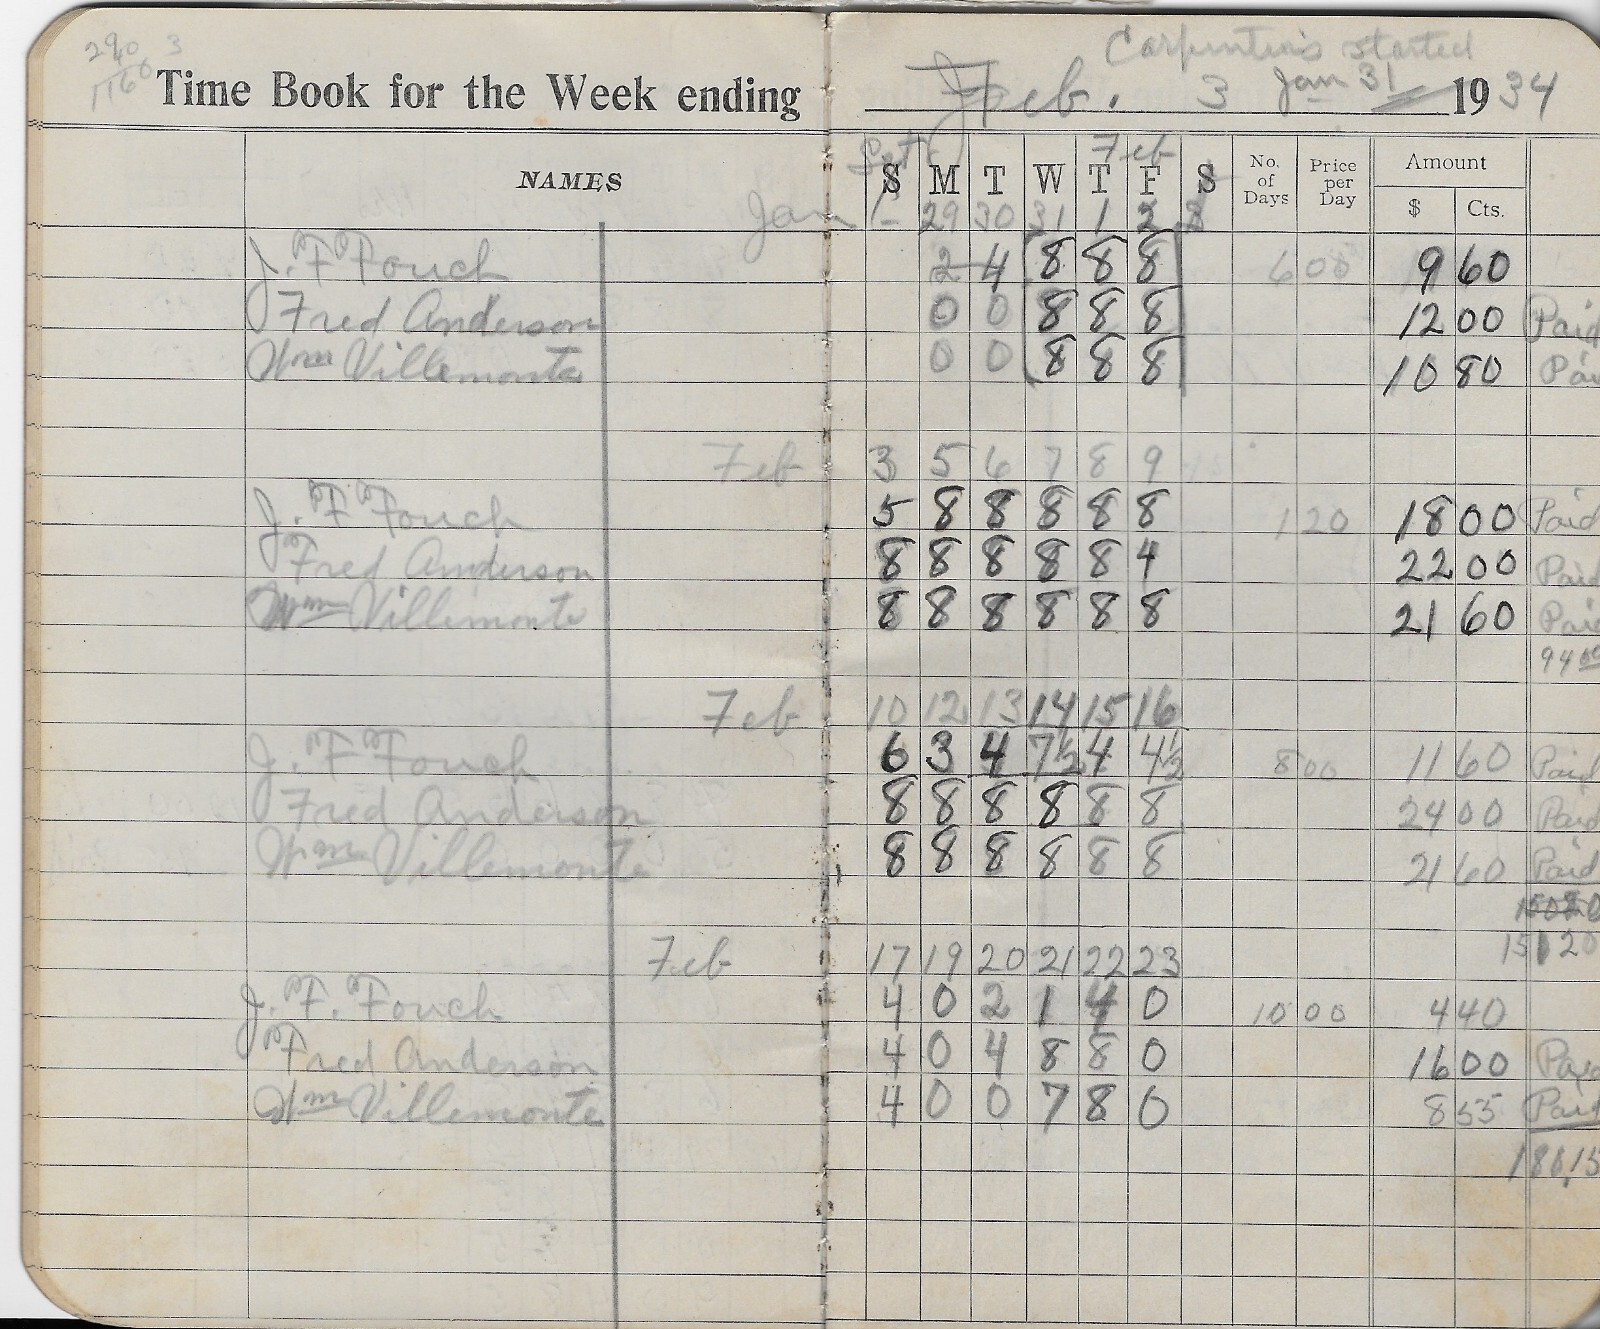 290 3
1160
Carpenters started
Time Book for the Week ending Feb. 3 Jan 31 1934
Sat Feb
NAMES S M T W T F S No. of Days Price per Day Amount $ Cts.
Jan 29 30 31 1 2 3
J. F. Fouch 2 4 8 8 8 6 00 9 60
Fred Anderson 0 0 8 8 8 12 00 Paid
Wm Villemonte 0 0 8 8 8 10 80 Pai
Feb 3 5 6 7 8 9
J. F. Fouch 5 8 8 8 8 8 1 20 18 00 Paid
Fred Anderson 8 8 8 8 8 4 22 00 Paid
Wm Villemonte 8 8 8 8 8 8 21 60 Paid
94 00
Feb 10 12 13 14 15 16
J. F. Fouch 6 3 4 7½ 4 4½ 8 00 11 60 Paid
Fred Anderson 8 8 8 8 8 8 24 00 Paid
Wm Villemonte 8 8 8 8 8 8 21 60 Paid
151 20
Feb 17 19 20 21 22 23
J. F. Fouch 4 0 2 1 4 0 10 00 4 40
Fred Anderson 4 0 4 8 8 0 16 00 Paid
Wm Villemonte 4 0 0 7 8 0 8 55 Paid